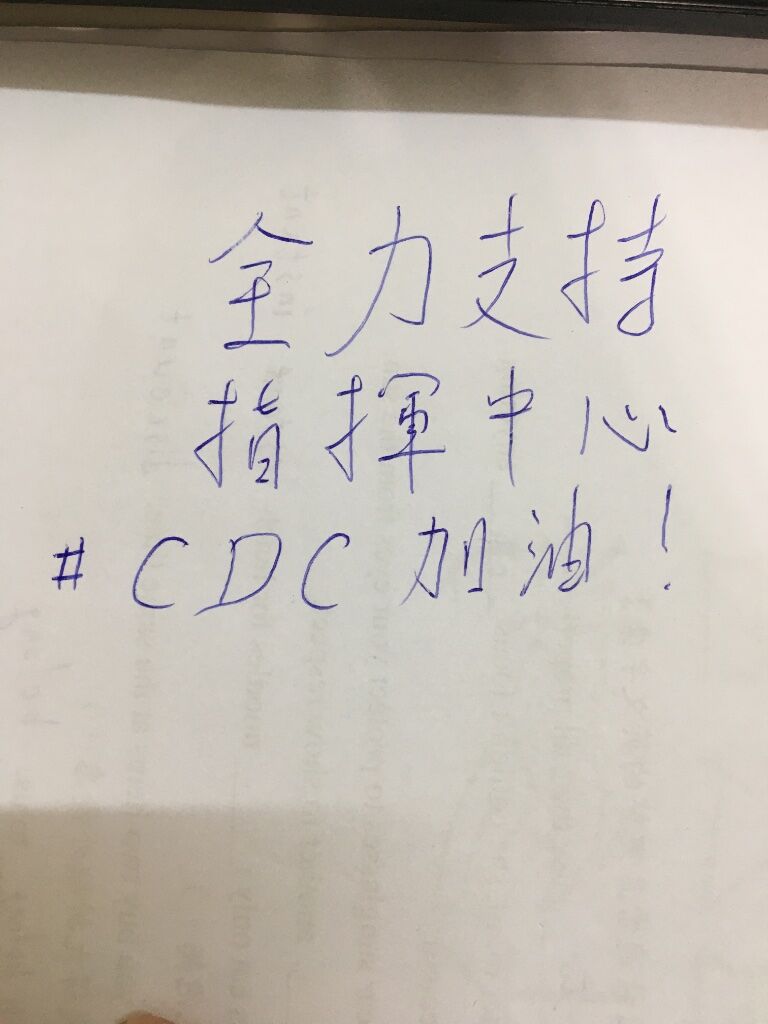 全力支持
指揮中心
#CDC加油!